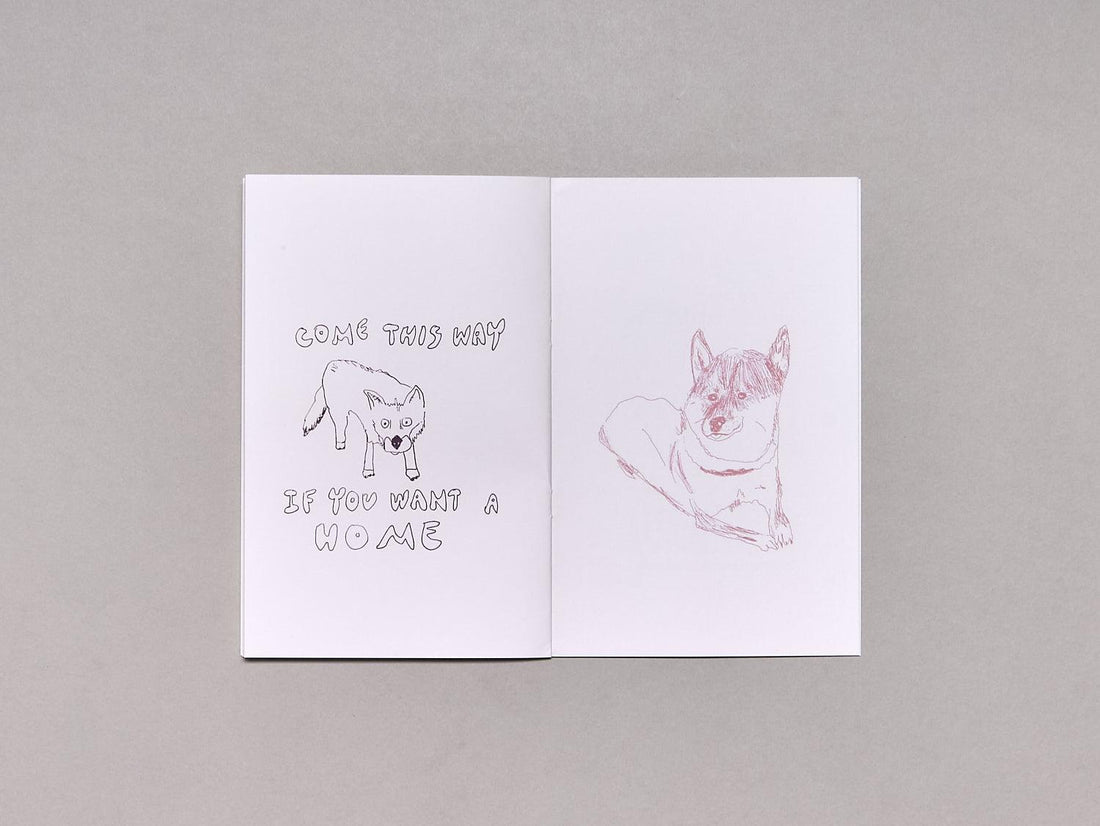 COME THIS WAY
IF YOU WANT A
HOME